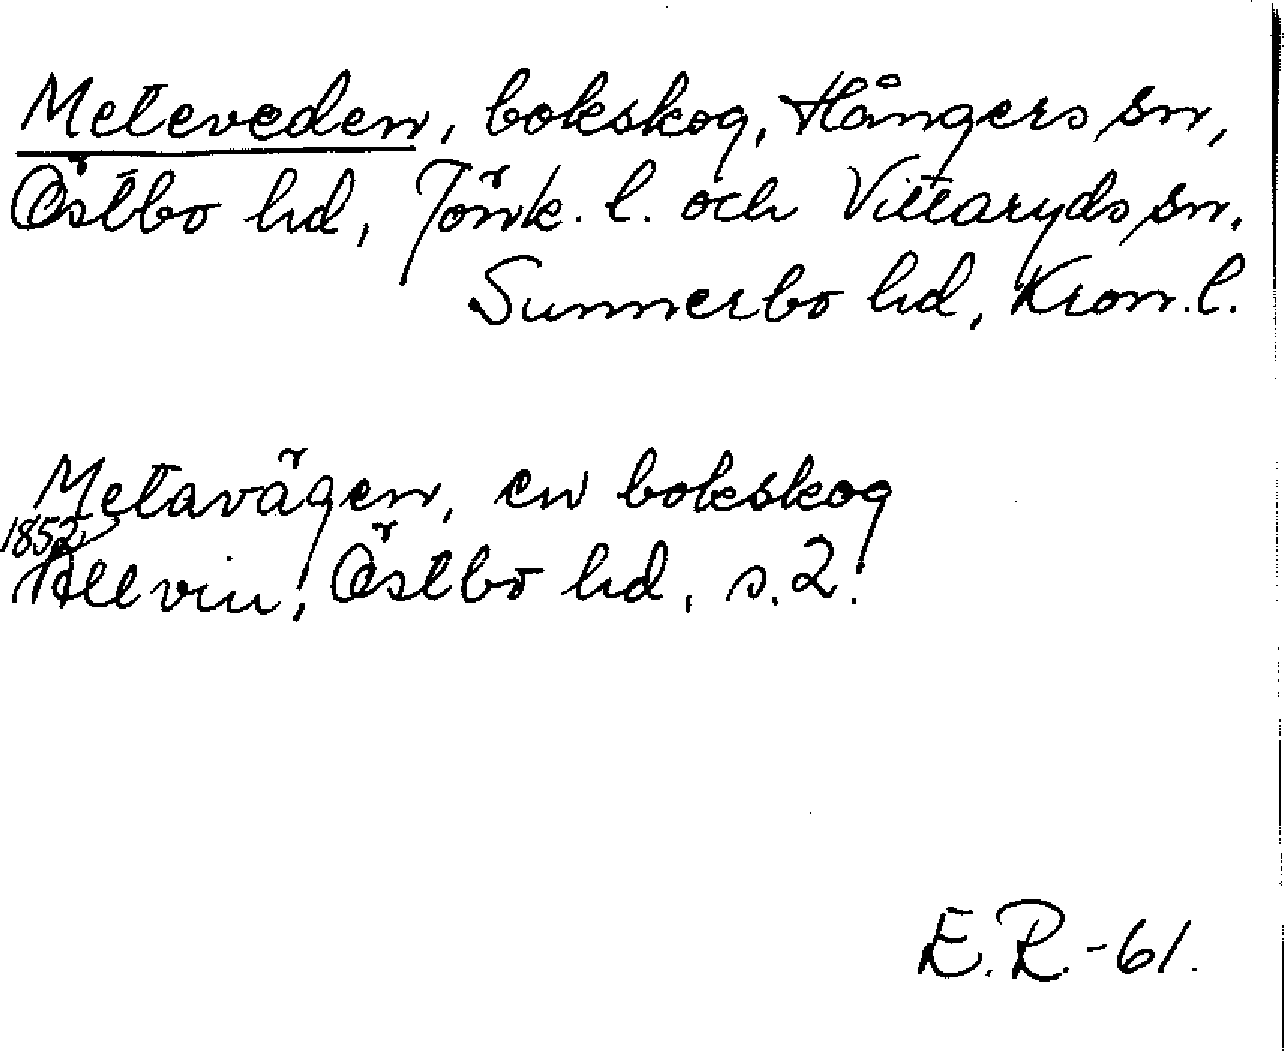 Meteveden, bokskog, Hångers sn,
Östbo hd, Jönk. l. och Vittaryds sn.
Sunnerbo hd, Kron. l.
Metavägen, en bokskog
1852
Allvin, Östbo hd, s. 2.
E. R. -61.